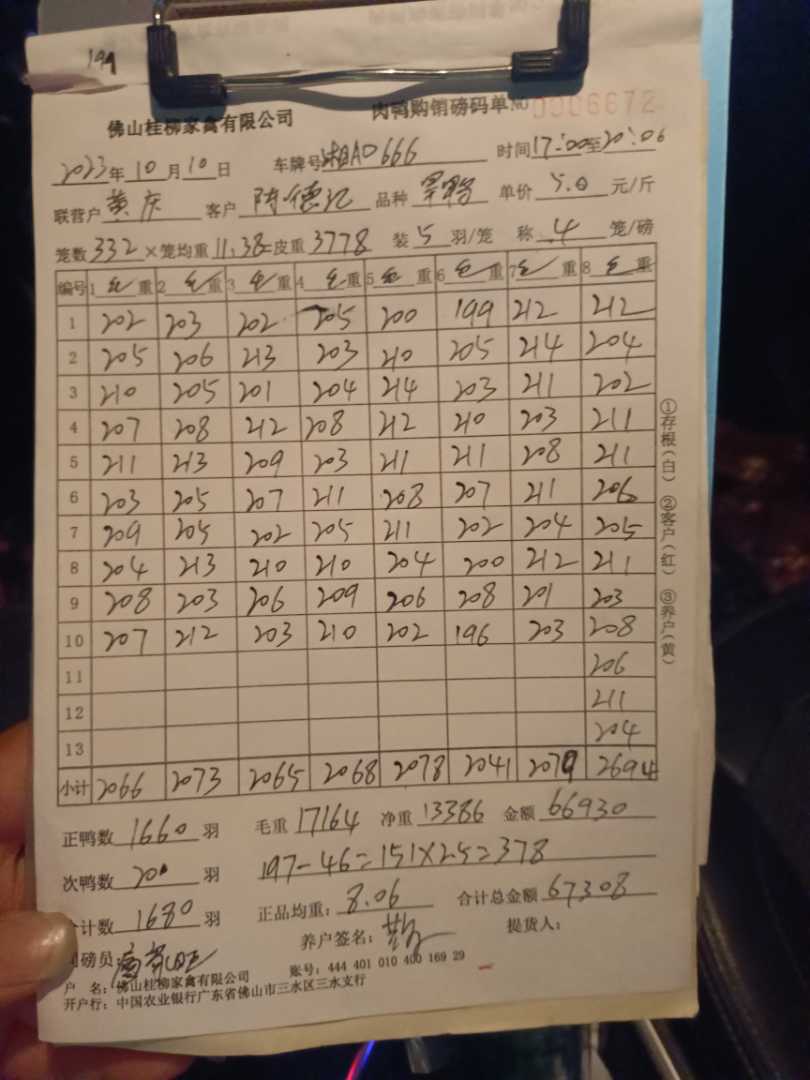 199
佛山桂柳家禽有限公司 肉鸭购销磅码单 No 0006672
2023年10月10日 车牌号湘A0666 时间17:00至20:06
联营户黄庆 客户陈德记 品种旱鸭 单价5.0元/斤
笼数332×笼均重11.38=皮重3778 装5羽/笼 称4笼/磅
编号 1毛重 2毛重 3毛重 4毛重 5毛重 6毛重 7毛重 8毛重
1 202 203 202 205 200 199 212 212
2 205 206 213 203 210 205 214 204
3 210 205 201 204 214 203 211 202
4 207 208 212 208 212 210 203 211
5 211 213 209 203 211 211 208 211
6 203 205 207 211 208 207 211 206
7 209 205 202 205 211 202 204 205
8 204 213 210 210 204 200 212 211
9 208 203 206 209 206 208 201 203
10 207 212 203 210 202 196 203 208
11 206
12 211
13 204
小计 2066 2073 2065 2068 2078 2041 2079 2694
正鸭数1660羽 毛重17164 净重13386 金额66930
次鸭数20羽 197-46=151×2.5=378
合计数1680羽 正品均重:8.06 合计总金额67308
养户签名: 提货人:
司磅员:
户 名:佛山桂柳家禽有限公司 账号:444 401 010 400 169 29
开户行:中国农业银行广东省佛山市三水区三水支行
①存根(白) ②客户(红) ③养户(黄)